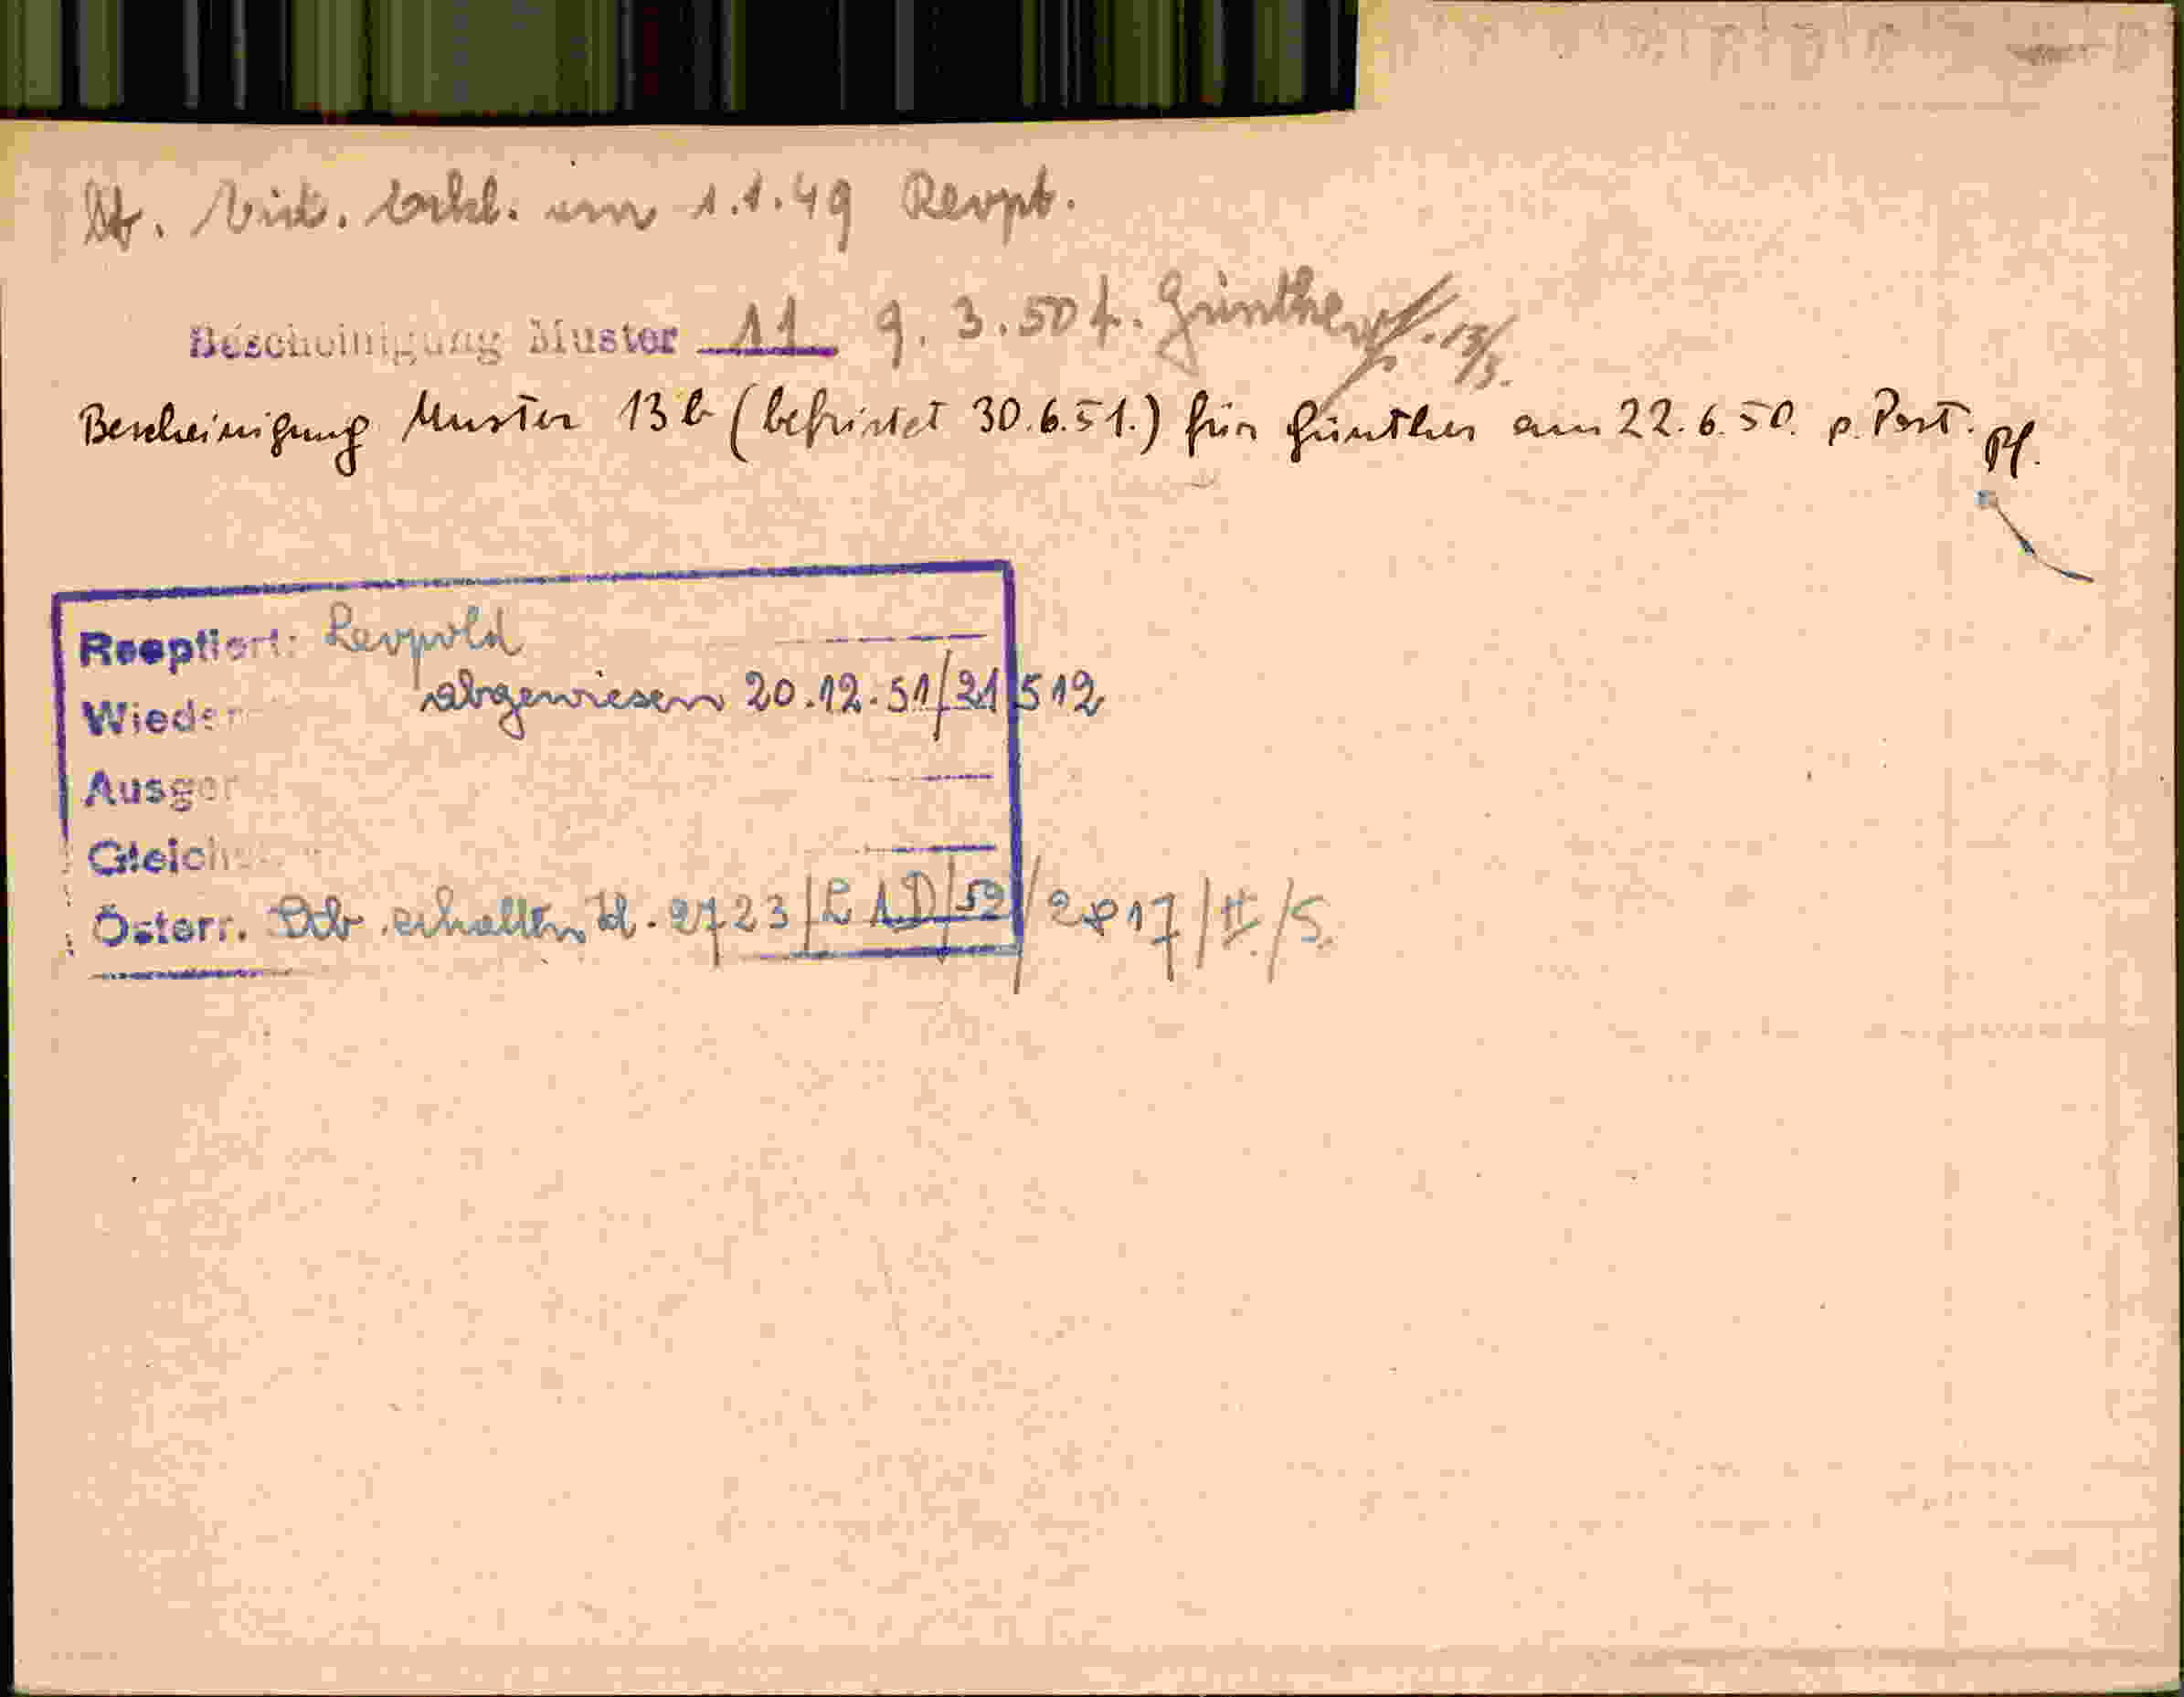 am 1.1.49 Reopt.
Bescheinigung Muster 11 9. 3.50 f. Günther 13/3.
Bescheinigung Muster 13b (befristet 30.6.51.) für Günther am 22.6.50. p. Post. Pf.
Reoptiert: Leopold
Wieder abgewiesen 20.12.51/21512
Ausge
Gleich
Österr. erhalten Zl. 2723/LAD/52/2817/II/S.